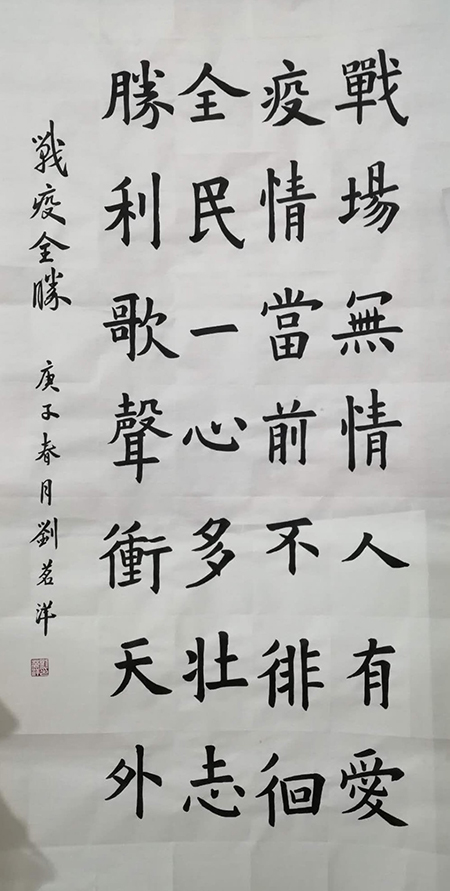 戰場無情人有愛
疫情當前不徘徊
全民一心多壯志
勝利歌聲衝天外
戰疫全勝 庚子春月劉茗洋